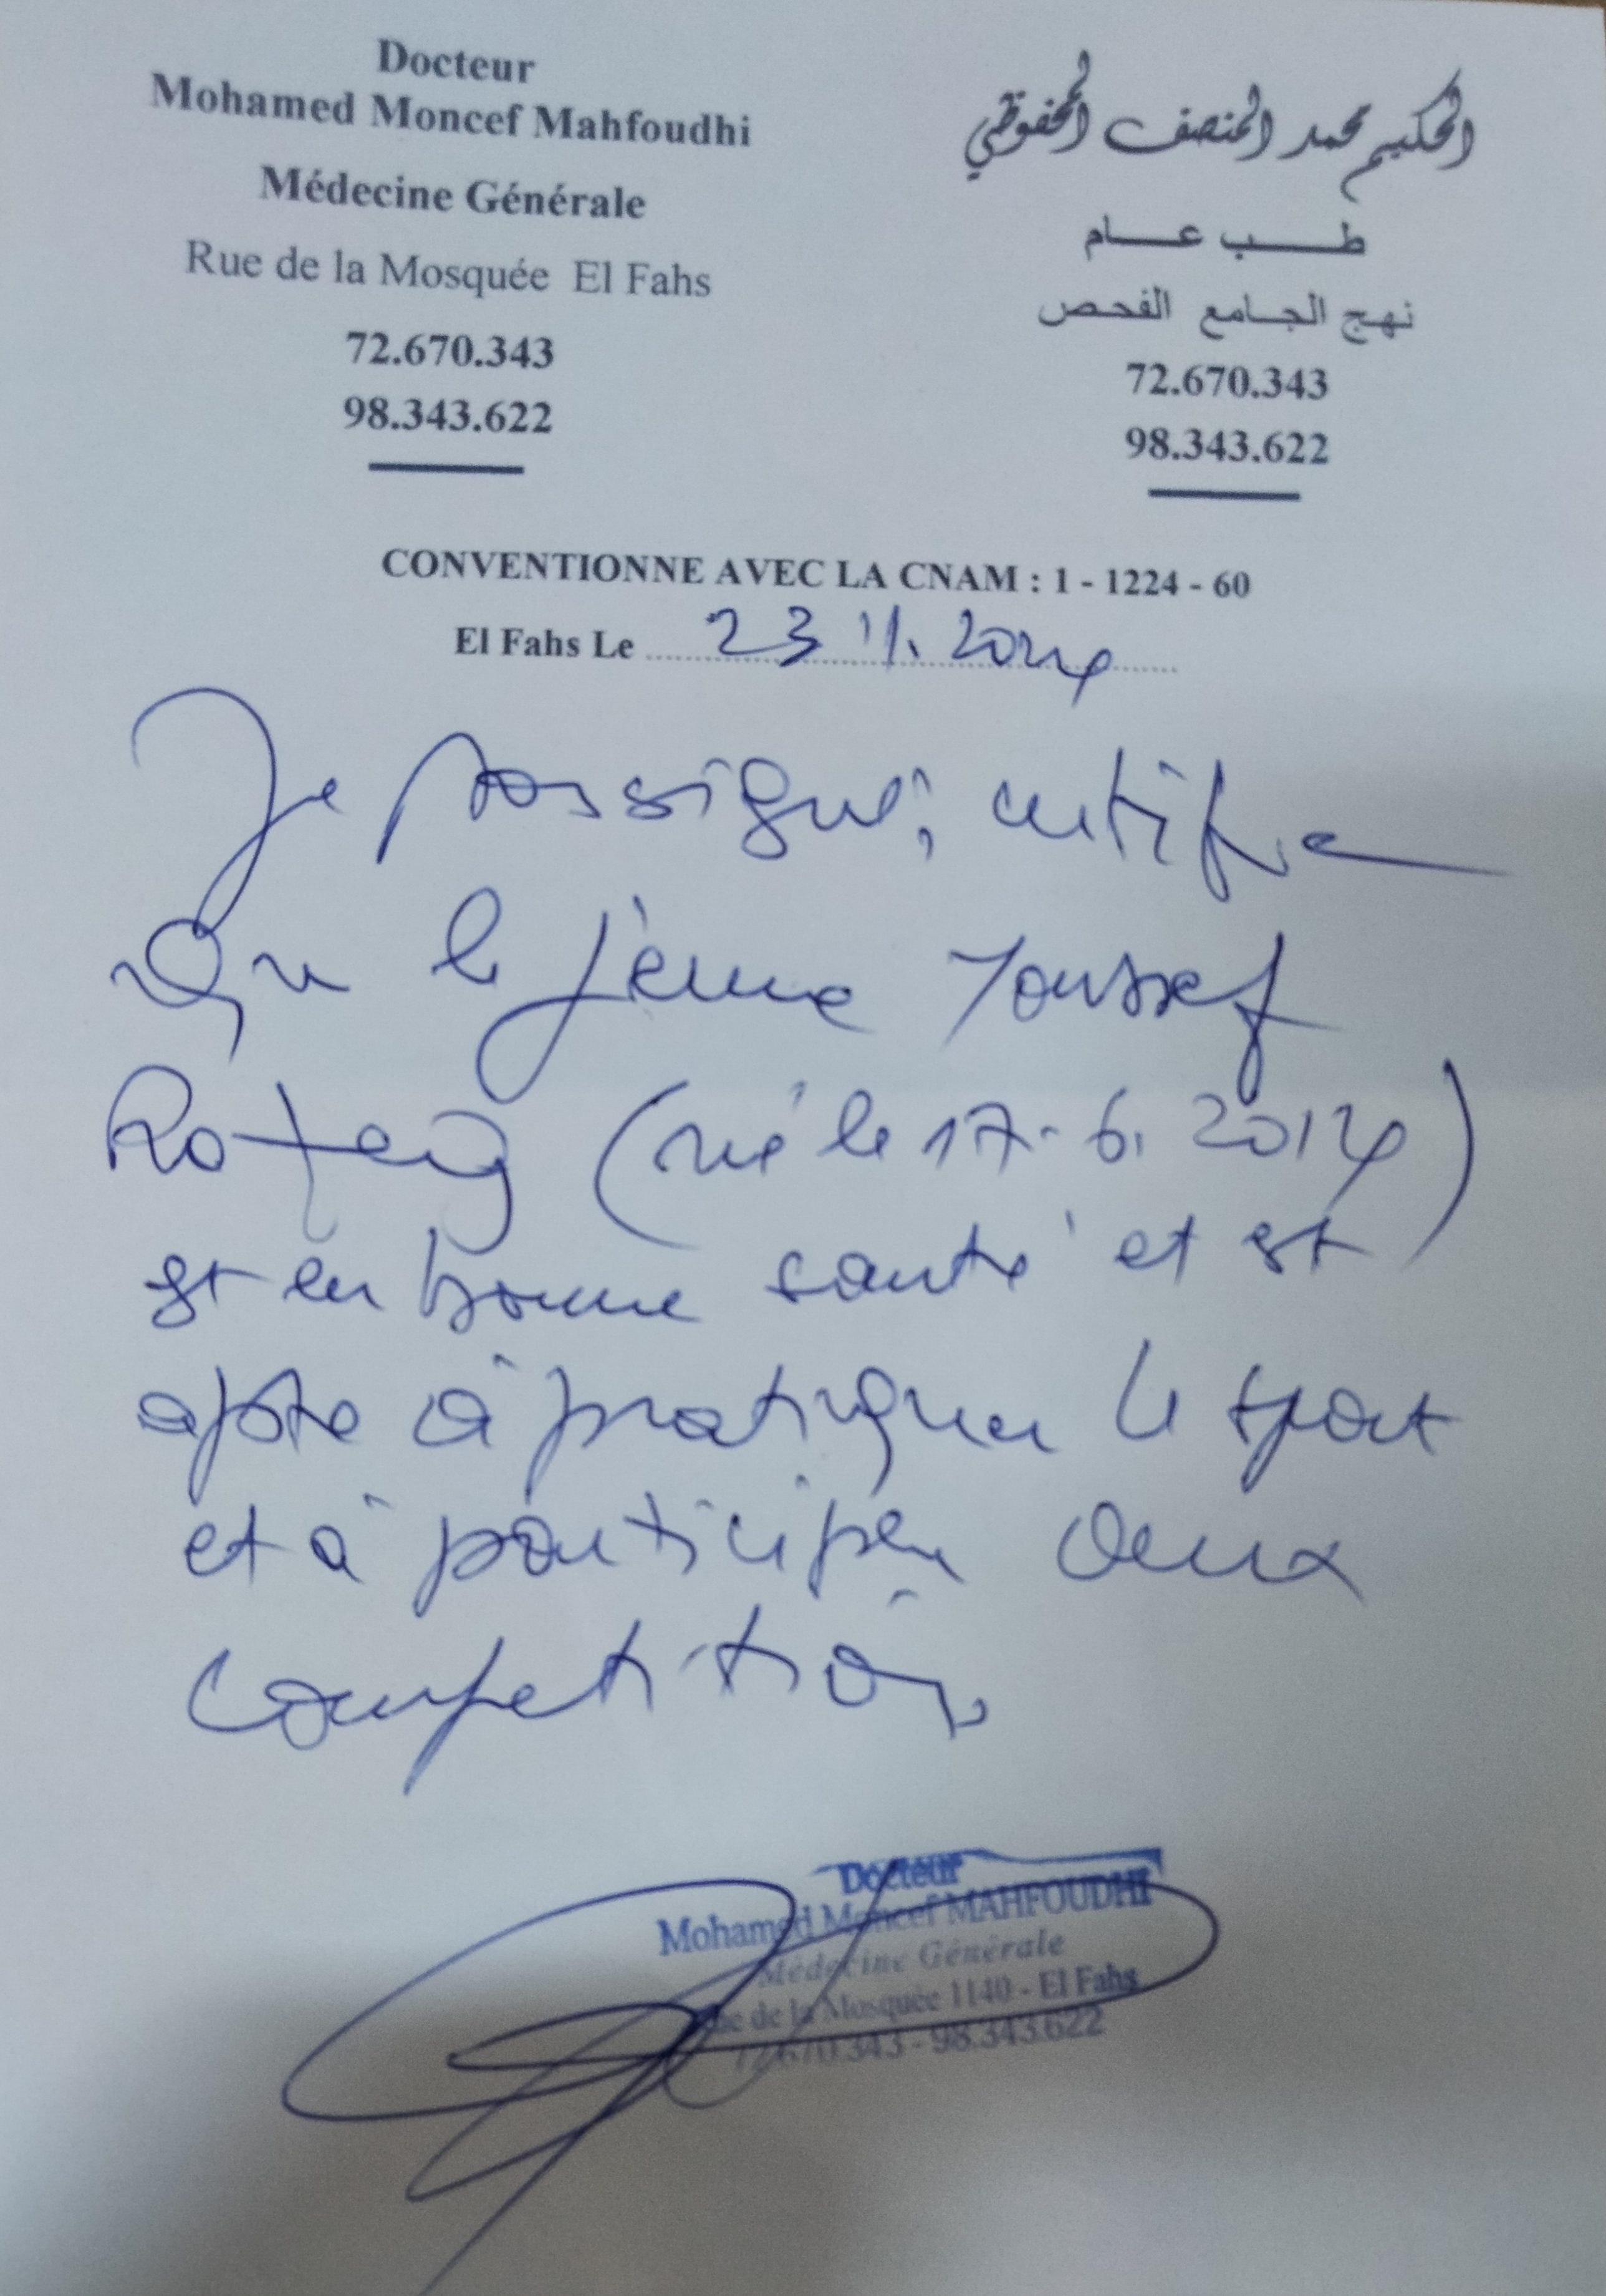 Docteur
Mohamed Moncef Mahfoudhi
Médecine Générale
Rue de la Mosquée El Fahs
72.670.343
98.343.622
الحكيم محمد المنصف المحفوظي
طب عام
نهج الجامع الفحص
72.670.343
98.343.622
CONVENTIONNE AVEC LA CNAM : 1 - 1224 - 60
El Fahs Le 23 11. 2024
Je sossigné, certifie
Que le jeune Youssef
(né le 17-6. 2014)
est en bonne santé et est
apte à pratiquer le sport
et à participer aux
compétitions
Docteur
Mohamed Moncef MAHFOUDHI
Médecine Générale
Rue de la Mosquée 1140 - El Fahs
72.670.343 - 98.343.622